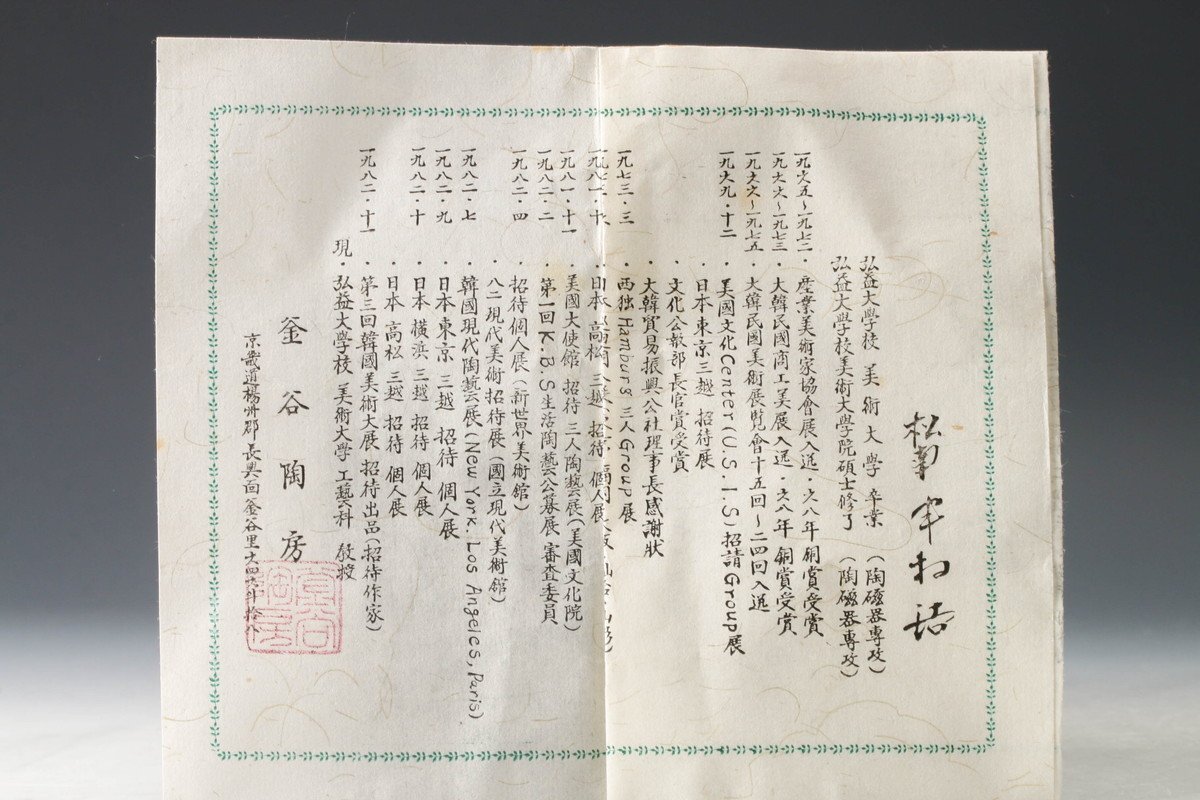 弘益大學校 美術大學 卒業 (陶磁器專攻)
弘益大學校美術大學院碩士修了 (陶磁器專攻)
一九六五~一九七二 ・産業美術家協會展入选・六八年銅賞受賞
一九六六~一九七三 ・大韓民國商工美展入选・六八年 銅賞受賞
一九六六~一九七五 ・大韓民國美術展覧會十五回~二四回入选
一九六九・十二 ・美國文化Center(U.S.I.S)招請Group展
・日本東京三越 招待展
・文化公報部長官賞受賞
・大韓貿易振興公社理事長感謝狀
一九七三・三 ・西独Hamburg 三人Group展
・日本 高松 三越 招待 個人展
一九八一・十一 ・美國大使館 招待 三人陶藝展(美國文化院)
一九八二・二 ・第一回K.B.S生活陶藝公募展 審査委員
一九八二・四 ・招待個人展(新世界美術館)
・八二現代美術招待展(國立現代美術館)
一九八二・七 ・韓國現代陶藝展(New York. Los Angeles, Paris)
一九八二・九 ・日本東京 三越 招待 個人展
一九八二・十 ・日本 横浜 三越 招待 個人展
・日本 高松 三越 招待 個人展
一九八二・十一 ・第三回韓國美術大展 招待出品(招待作家)
現・弘益大學校 美術大學 工藝科 敎授
釜谷陶房
京畿道楊州郡長興面釜谷里